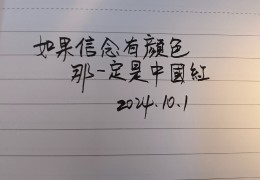 如果信念有顔色
那一定是中國紅
2024.10.1